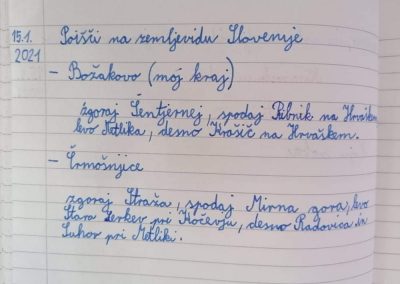 15.1.
2021
Poišči na zemljevidu Slovenije
- Božakovo (moj kraj)
zgoraj Šentjernej, spodaj Ribnik na Hrvaškem
levo Metlika, desno Krašič na Hrvaškem.
- Črmošnjice
zgoraj Straža, spodaj Mirna gora, levo
Stara Cerkev pri Kočevju, desno Radovica in
Suhor pri Metliki.